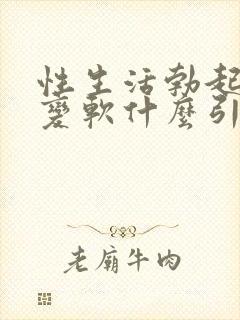 性生活勃起
變軟什麼引
老廟牛肉